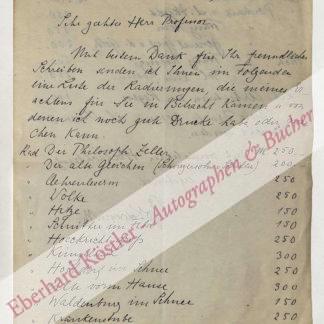 Sehr geehrter Herr Professor
Mit bestem Dank für Ihr freundliches
Schreiben sende ich Ihnen im Folgenden
eine Liste der Radierungen, die meines Er
achtens für Sie in Betracht kämen u von
denen ich noch gute Drucke habe oder
chen kann.
Rad Der Philosoph Zeller 250.
" Der alte Gleichen 200
" Aehrenleserin 250
" Wolke 250
" Hitze 150
" Schnitter im 150
" 250
" 300
" im Schnee 250
" vorm Hause 300
" Waldenburg im Schnee 150
" Krankenstube 250
Eberhard Köstler - Autographen & Bücher